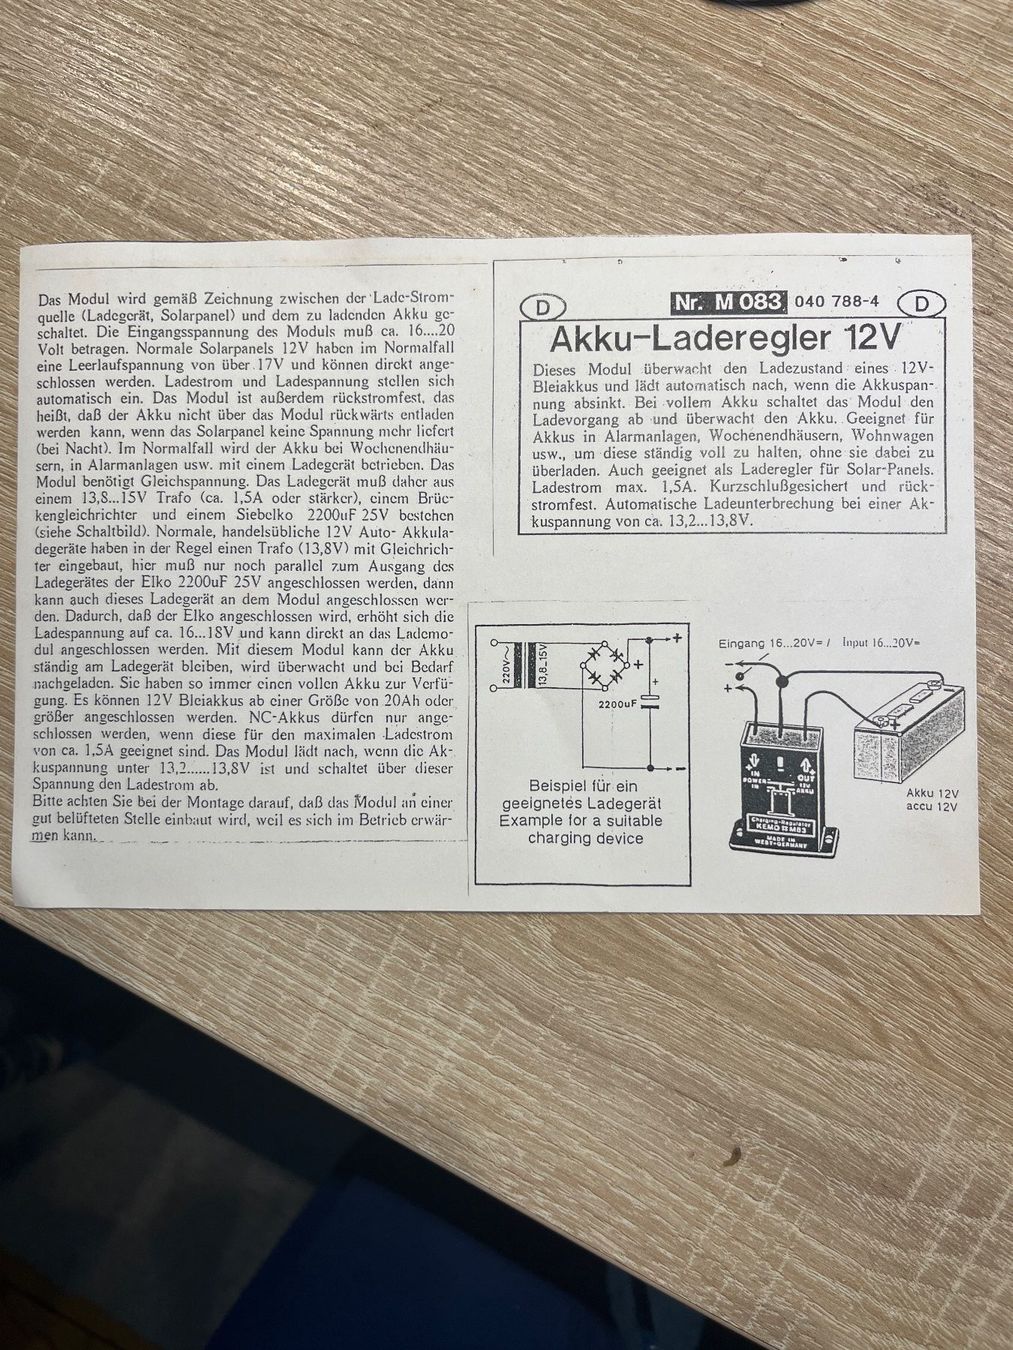 Das Modul wird gemäß Zeichnung zwischen der Lade-Strom-
quelle (Ladegerät, Solarpanel) und dem zu ladenden Akku ge-
schaltet. Die Eingangsspannung des Moduls muß ca. 16....20
Volt betragen. Normale Solarpanels 12V haben im Normalfall
eine Leerlaufspannung von über 17V und können direkt ange-
schlossen werden. Ladestrom und Ladespannung stellen sich
automatisch ein. Das Modul ist außerdem rückstromfest, das
heißt, daß der Akku nicht über das Modul rückwärts entladen
werden kann, wenn das Solarpanel keine Spannung mehr liefert
(bei Nacht). Im Normalfall wird der Akku bei Wochenendhäu-
sern, in Alarmanlagen usw. mit einem Ladegerät betrieben. Das
Modul benötigt Gleichspannung. Das Ladegerät muß daher aus
einem 13,8...15V Trafo (ca. 1,5A oder stärker), einem Brüc-
kengleichrichter und einem Siebelko 2200uF 25V bestehen
(siehe Schaltbild). Normale, handelsübliche 12V Auto- Akkula-
degeräte haben in der Regel einen Trafo (13,8V) mit Gleichrich-
ter eingebaut, hier muß nur noch parallel zum Ausgang des
Ladegerätes der Elko 2200uF 25V angeschlossen werden, dann
kann auch dieses Ladegerät an dem Modul angeschlossen wer-
den. Dadurch, daß der Elko angeschlossen wird, erhöht sich die
Ladespannung auf ca. 16...18V und kann direkt an das Lademo-
dul angeschlossen werden. Mit diesem Modul kann der Akku
ständig am Ladegerät bleiben, wird überwacht und bei Bedarf
nachgeladen. Sie haben so immer einen vollen Akku zur Verfü-
gung. Es können 12V Bleiakkus ab einer Größe von 20Ah oder
größer angeschlossen werden. NC-Akkus dürfen nur ange-
schlossen werden, wenn diese für den maximalen Ladestrom
von ca. 1,5A geeignet sind. Das Modul lädt nach, wenn die Ak-
kuspannung unter 13,2......13,8V ist und schaltet über dieser
Spannung den Ladestrom ab.
Bitte achten Sie bei der Montage darauf, daß das Modul an einer
gut belüfteten Stelle einbaut wird, weil es sich im Betrieb erwär-
men kann.
D Nr. M 083 040 788-4 D
Akku-Laderegler 12V
Dieses Modul überwacht den Ladezustand eines 12V-
Bleiakkus und lädt automatisch nach, wenn die Akkuspan-
nung absinkt. Bei vollem Akku schaltet das Modul den
Ladevorgang ab und überwacht den Akku. Geeignet für
Akkus in Alarmanlagen, Wochenendhäusern, Wohnwagen
usw., um diese ständig voll zu halten, ohne sie dabei zu
überladen. Auch geeignet als Laderegler für Solar-Panels.
Ladestrom max. 1,5A. Kurzschlußgesichert und rück-
stromfest. Automatische Ladeunterbrechung bei einer Ak-
kuspannung von ca. 13,2...13,8V.
220V~
13,8...15V
+
+
+
2200uF
-
Beispiel für ein
geeignetes Ladegerät
Example for a suitable
charging device
Eingang 16...20V= / Input 16...20V=
-
+
-
+
IN
POWER
IN
OUT
12V
AKKU
Charging-Regulator
KEMO M83
MADE IN
WEST-GERMANY
Akku 12V
accu 12V